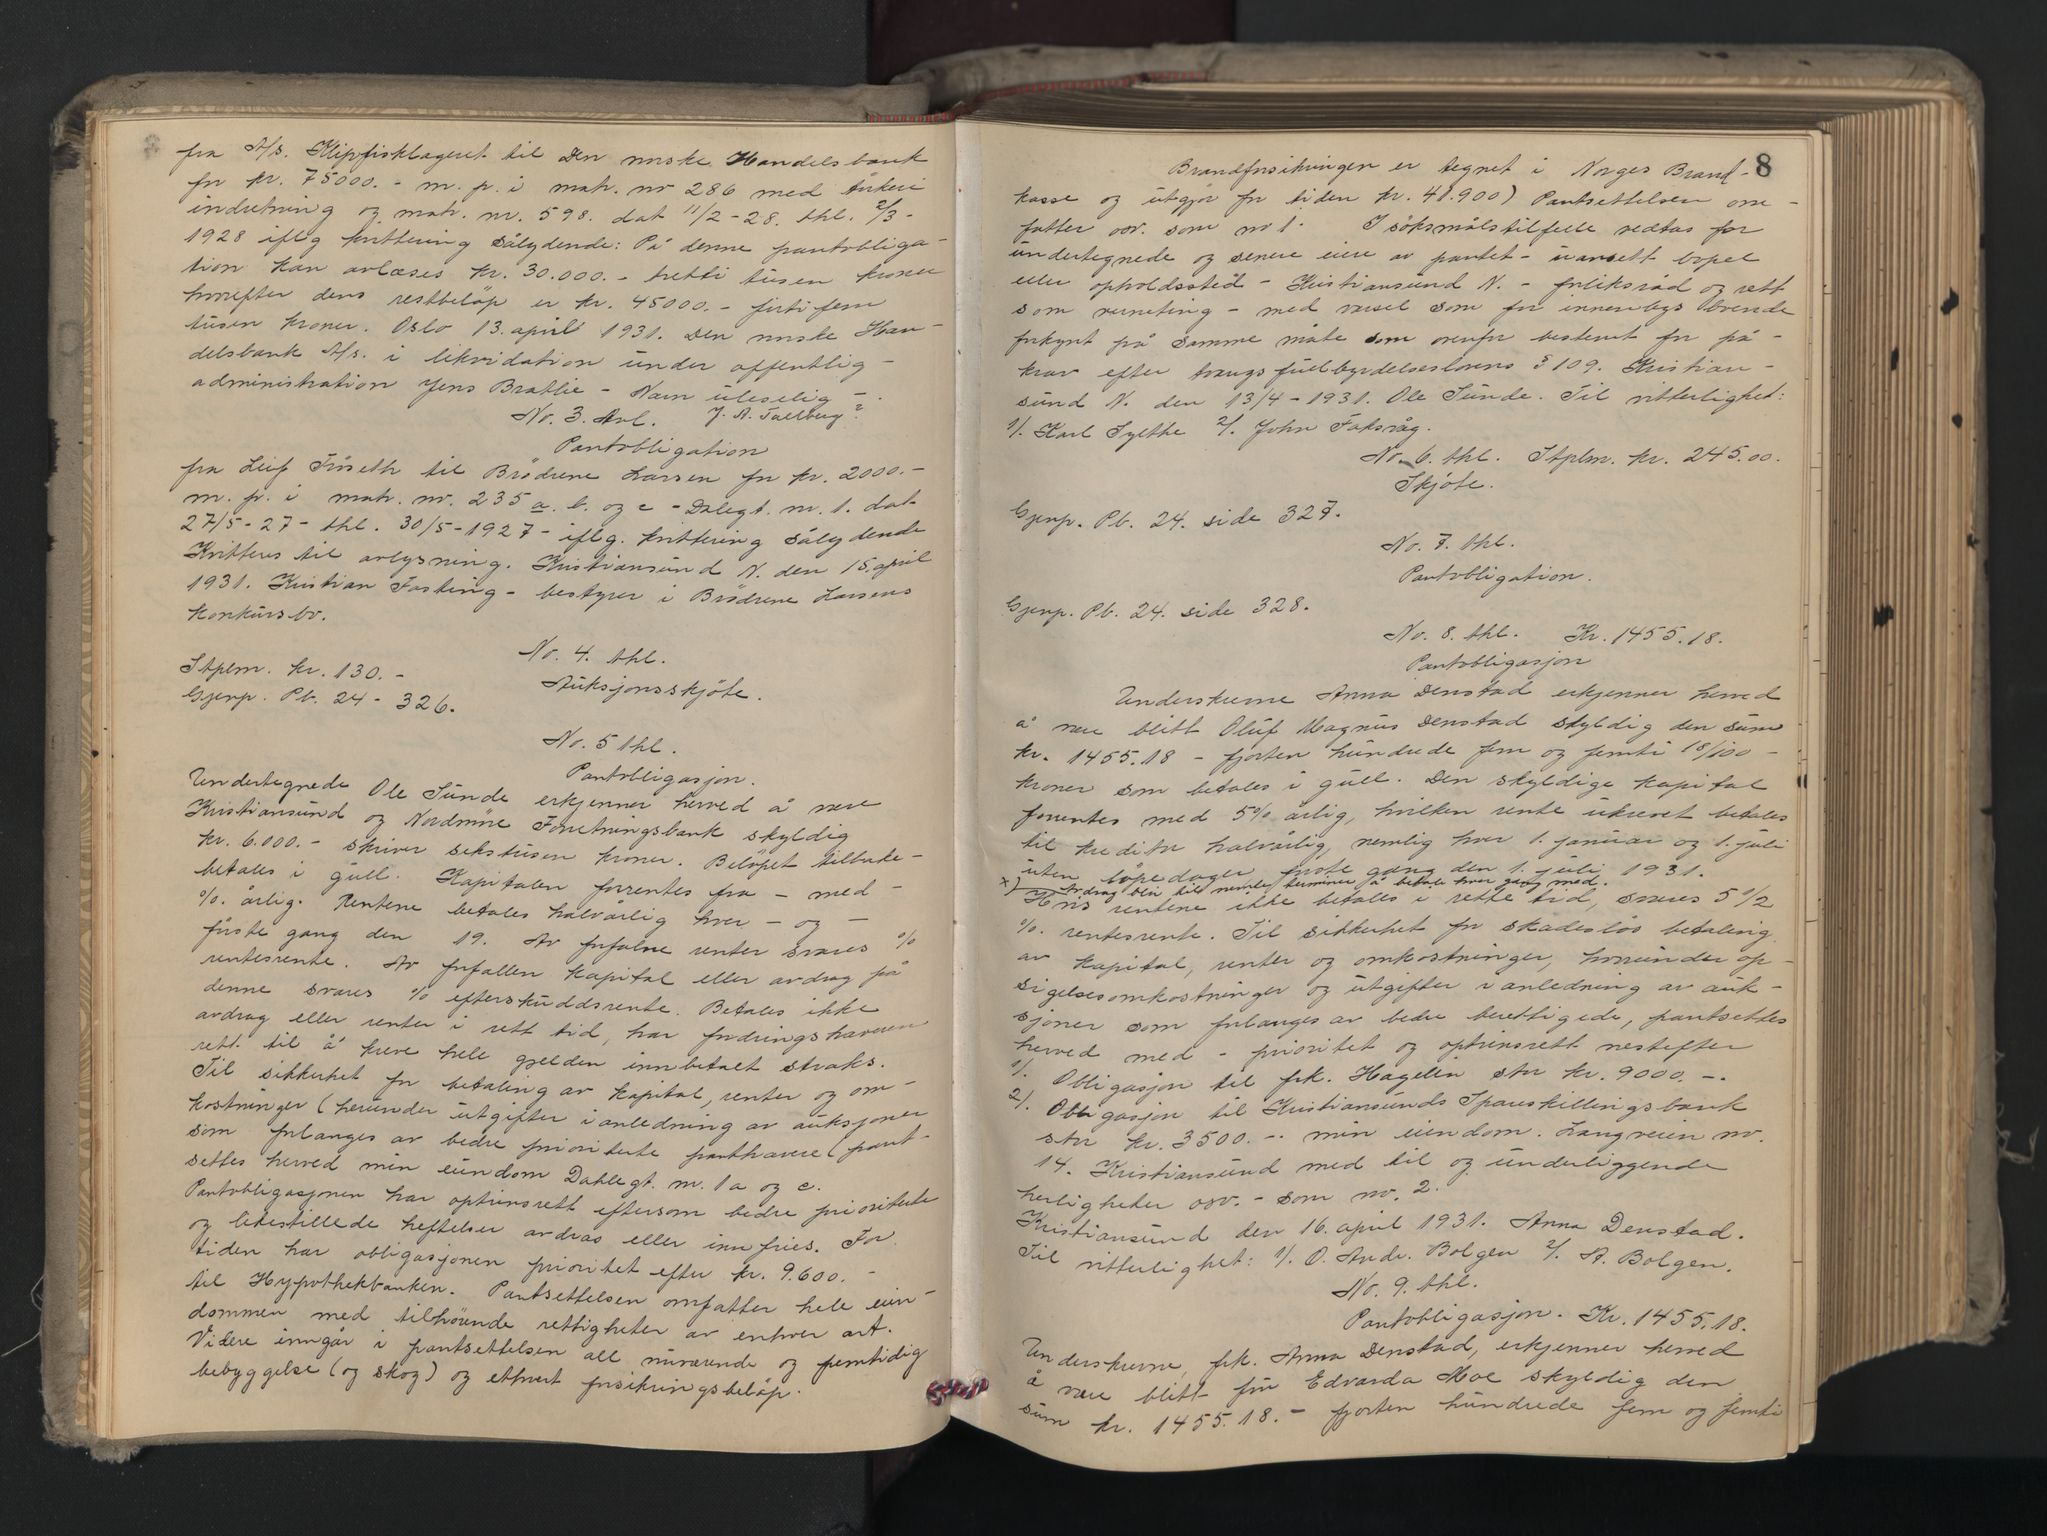 fra A/s. Klipfisklageret til Den norske Handelsbank
for kr. 75000.- m. p. i matr. nr 286 med tørkeri
indretning og matr. nr. 598. dat 11/2-28. thl. 2/3-
1928 iflg kvittering sålydende: På denne pantobliga-
tion kan avlæses kr. 30.000.- tretti tusen kroner
hvorefter dens restbeløp er kr. 45000.- firtifem
tusen kroner. Oslo 13. april 1931. Den norske Han-
delsbank A/s. i likvidation under offentlig
administration Jens Bratlie - Navn uleselig -.
No. 3. Avl. J. A. Tallberg?
Pantobligation
fra Leif Fuseth til Brødrene Larsen for kr. 2000.-
m. p. i matr. nr. 235 a. b. og c - Dalegt. nr. 1. dat
27/5-27- thl. 30/5-1927- iflg. kvittering sålydende
Kvitteres til avlysning. Kristiansund N. den 15. april
1931. Kristian Fasting - bestyrer i Brødrene Larsens
konkursbo.
No. 4. thl.
Stplm. kr. 130.-
Auksjonsskjøte.
Gjenp. Pb. 24 - 326.
No. 5 thl.
Pantobligasjon.
Undertegnede Ole Sunde erkjenner herved å være
Kristiansund og Nordmøre Forretningsbank skyldig
kr. 6.000.- skriver sekstusen kroner. Beløpet tilbake-
betales i gull. Kapitalen forrentes fra - med -
% årlig. Rentene betales halvårlig hver - og -
første gang den 19. Av forfalne renter svares %
rentesrente. Av forfallen kapital eller avdrag på
denne svares % efterskuddsrente. Betales ikke
avdrag eller renter i rett tid, har fordringshaveren
rett til å kreve hele gjelden innbetalt straks.
Til sikkerhet for betaling av kapital, renter og om-
kostninger (herunder utgifter i anledning av auksjoner
som forlanges av bedre prioriterte panthavere) pant-
settes herved min eiendom Dahlegt. nr. 1 a og c.
Pantobligasjonen har optrinsrett eftersom bedre prioriterte
og likestillede heftelser avdras eller innfries. For
tiden har obligasjonen prioritet efter kr. 9.600.-
til Hypothekbanken. Pantsettelsen omfatter hele eien-
dommen med tilhørende rettigheter av enhver art.
Videre inngår i pantsettelsen all nuværende og fremtidig
bebyggelse (og skog) og ethvert forsikringsbeløp.
8
Brandforsikringen er tegnet i Norges Brand-
kasse og utgjør for tiden kr. 41.900) Pantsettelsen om-
fatter osv. som nr 1. I søksmålstilfelle vedtas for
undertegnede og senere eiere av pantet - uansett bopel
eller opholdssted - Kristiansund N. - forliksråd og rett
som verneting - med varsel som for innenbys boende
forkynt på samme måte som ovenfor bestemt for på-
krav efter tvangsfullbyrdelseslovens § 109. Kristian-
sund N. den 13/4-1931. Ole Sunde. Til vitterlighet:
1/. Karl Sylthe 2/. John Faksvåg.
No. 6. thl. Stplm. kr. 245.00.
Skjøte.
Gjenp. Pb. 24. side 327.
No. 7. thl.
Pantobligation.
Gjenp. Pb. 24. side 328.
No. 8. thl. Kr. 1455.18.
Pantobligasjon
Underskrevne Anna Denstad erkjenner herved
å være blitt Oluf Magnus Denstad skyldig den sum
kr. 1455.18 - fjorten hundrede fem og femti 18/100 -
kroner som betales i gull. Den skyldige kapital
forrentes med 5% årlig, hvilken rente ukrevet betales
til kreditor halvårlig, nemlig hver 1. januar og 1. juli
uten løpedager, første gang den 1. juli 1931.
x) Avdrag blir til nevnte terminer å betale hver gang med.
Hvis rentene ikke betales i rette tid, svares 5 1/2
%. rentesrente. Til sikkerhet for skadesløs betaling
av kapital, renter og omkostninger, herunder op-
sigelsesomkostninger og utgifter i anledning av auk-
sjoner som forlanges av bedre berettigede, pantsettes
herved med - prioritet og optrinsrett nestefter
1/. Obligasjon til frk. Hagelin stor kr. 9000.-.
2/. Obligasjon til Kristiansunds Spareskillingsbank
stor kr. 3500.-. min eiendom. Langveien nr.
14. Kristiansund med til og underliggende
herligheter osv. - som nr. 2.
Kristiansund den 16. april 1931. Anna Denstad.
Til vitterlighet: 1/. O. Andr. Bolgen 2/. A. Bolgen.
No. 9. thl.
Pantobligasjon. Kr. 1455.18.
Underskrevne, frk. Anna Denstad, erkjenner herved
å være blitt fru Edvarda Moe skyldig den
sum kr. 1455.18.- fjorten hundrede fem og femti